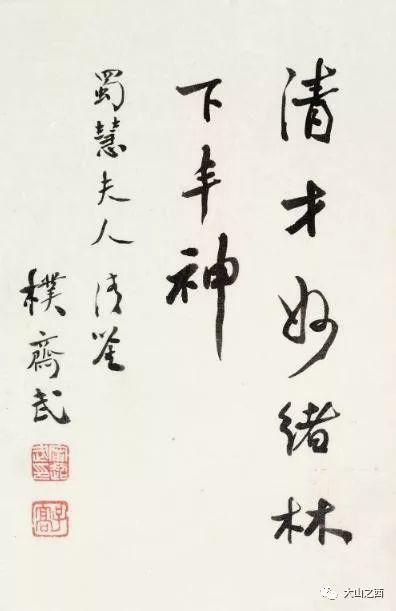 清才妙緒林
下丰神
蜀慧夫人清
樸齋武
大山之西